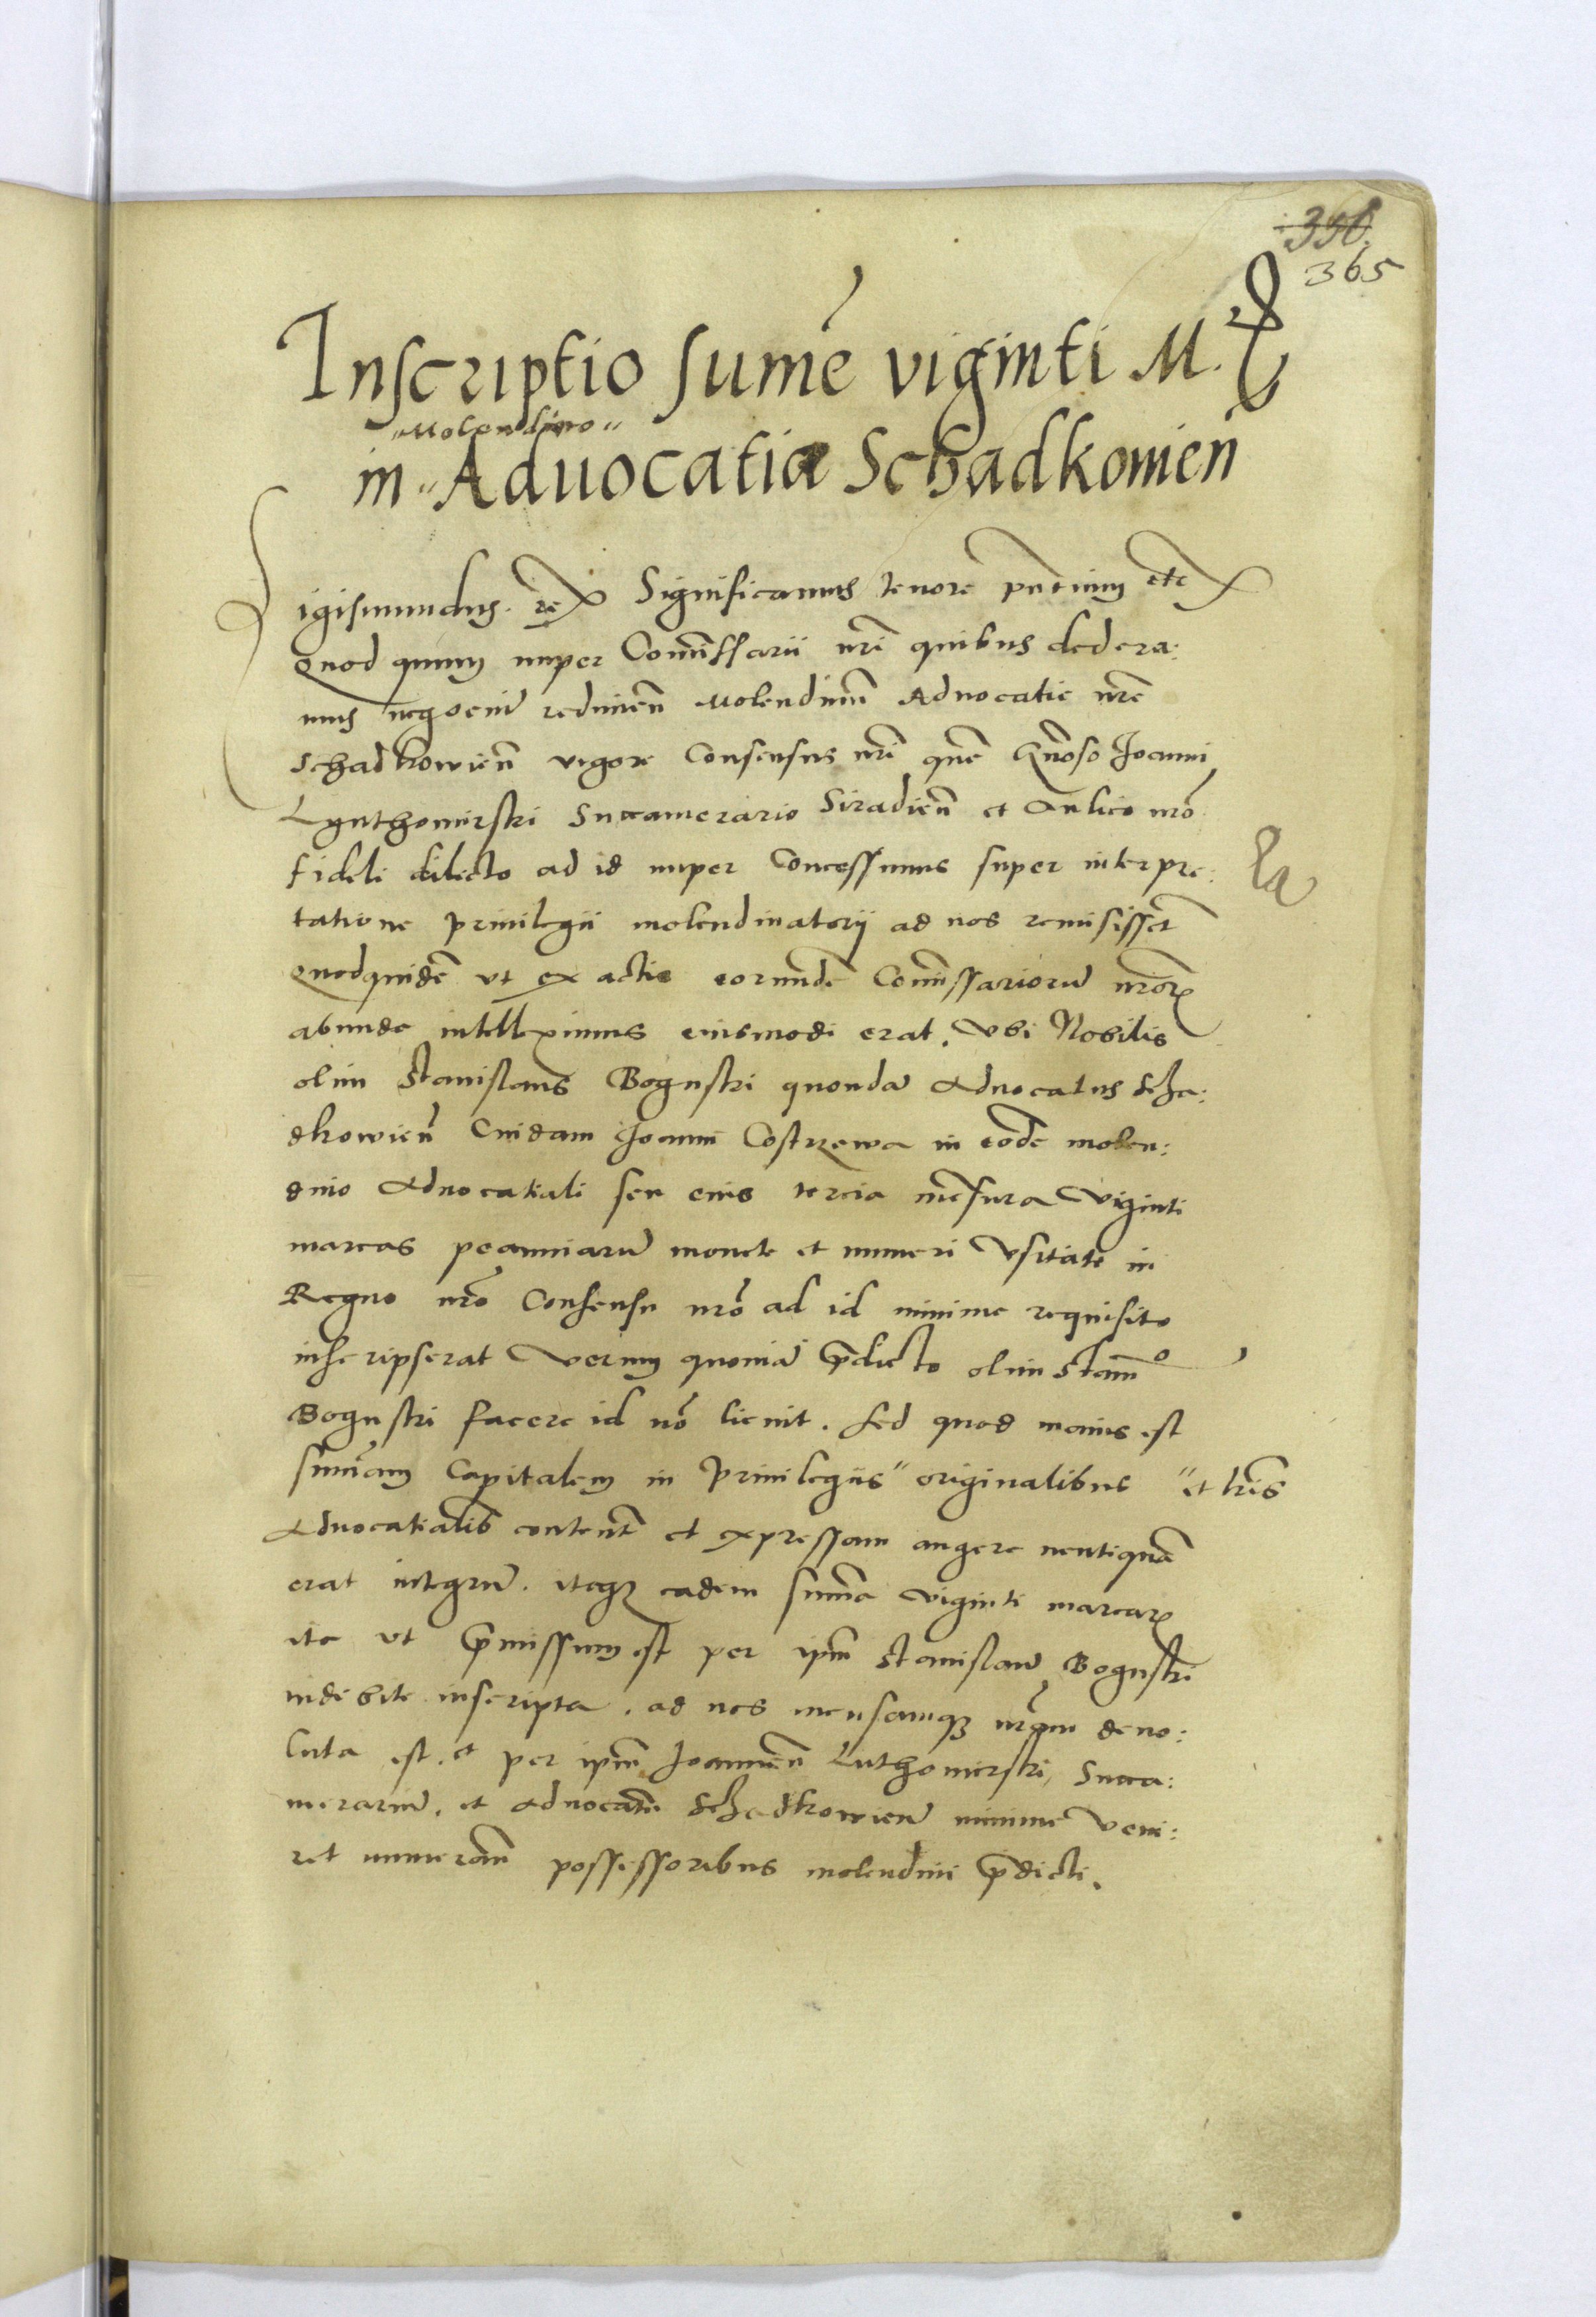 358
365
Inscriptio sumē viginti M.
"Molendino"
in "Aduocatia Schadkouien̄
Sigismundus rex Significamus tenore pn̄tium etc
Quod quum nuper Com̄issarii nr̄i quibus dedera:
mus negociū redimen̄ Molendinū Aduocatie nr̄e
Schadkowien̄ vigore Consensus nr̄i quē Gn̄oso Joanni
Lyuthomirski Succamerario Siradien̄ et Aulico nr̄o
fideli dilecto ad id nuper Concessimus super interpre:
tatione priuilegii molendinatorij ad nos remisissēt
Quodquidē vt ex actis eorundē Com̄issariorū nr̄oꝝ
abunde intelleximus eiusmodi erat. Vbi Nobilis
olim Stanislaus Boguski quondā Aduocatus Scha:
dkowien̄ Cuidam Joanni Costrzewa in eodē molen:
dino Aduocatiali seu eius tercia mēsura Viginti
marcas pecuniarū monete et numeri Vsitate in
Regno nr̄o Consensu nr̄o ad id minime requisito
inscripserat Verum quoniā p̄dicto olim Stan̄o
Boguski facere id nō licuit. Sed quod maius est
sum̄am Capitalem in Priuilegiis "originalibus" et lr̄is
Aduocatialib contentā et expressam augere neutiquā
erat integrū. itaqꝫ eadem sum̄a viginti marcaꝝ
ita vt p̄missum est per ip̄m Stanislaū Boguski
indebite inscripta. ad nos mensamqꝫ nr̄am deuo:
luta est. et per ip̄m Joannem Luthomirski, Succa:
merariū. et Aduocatū Schadkowien̄ minime Veni:
ret numeran̄ possessoribus molendini p̄dicti.